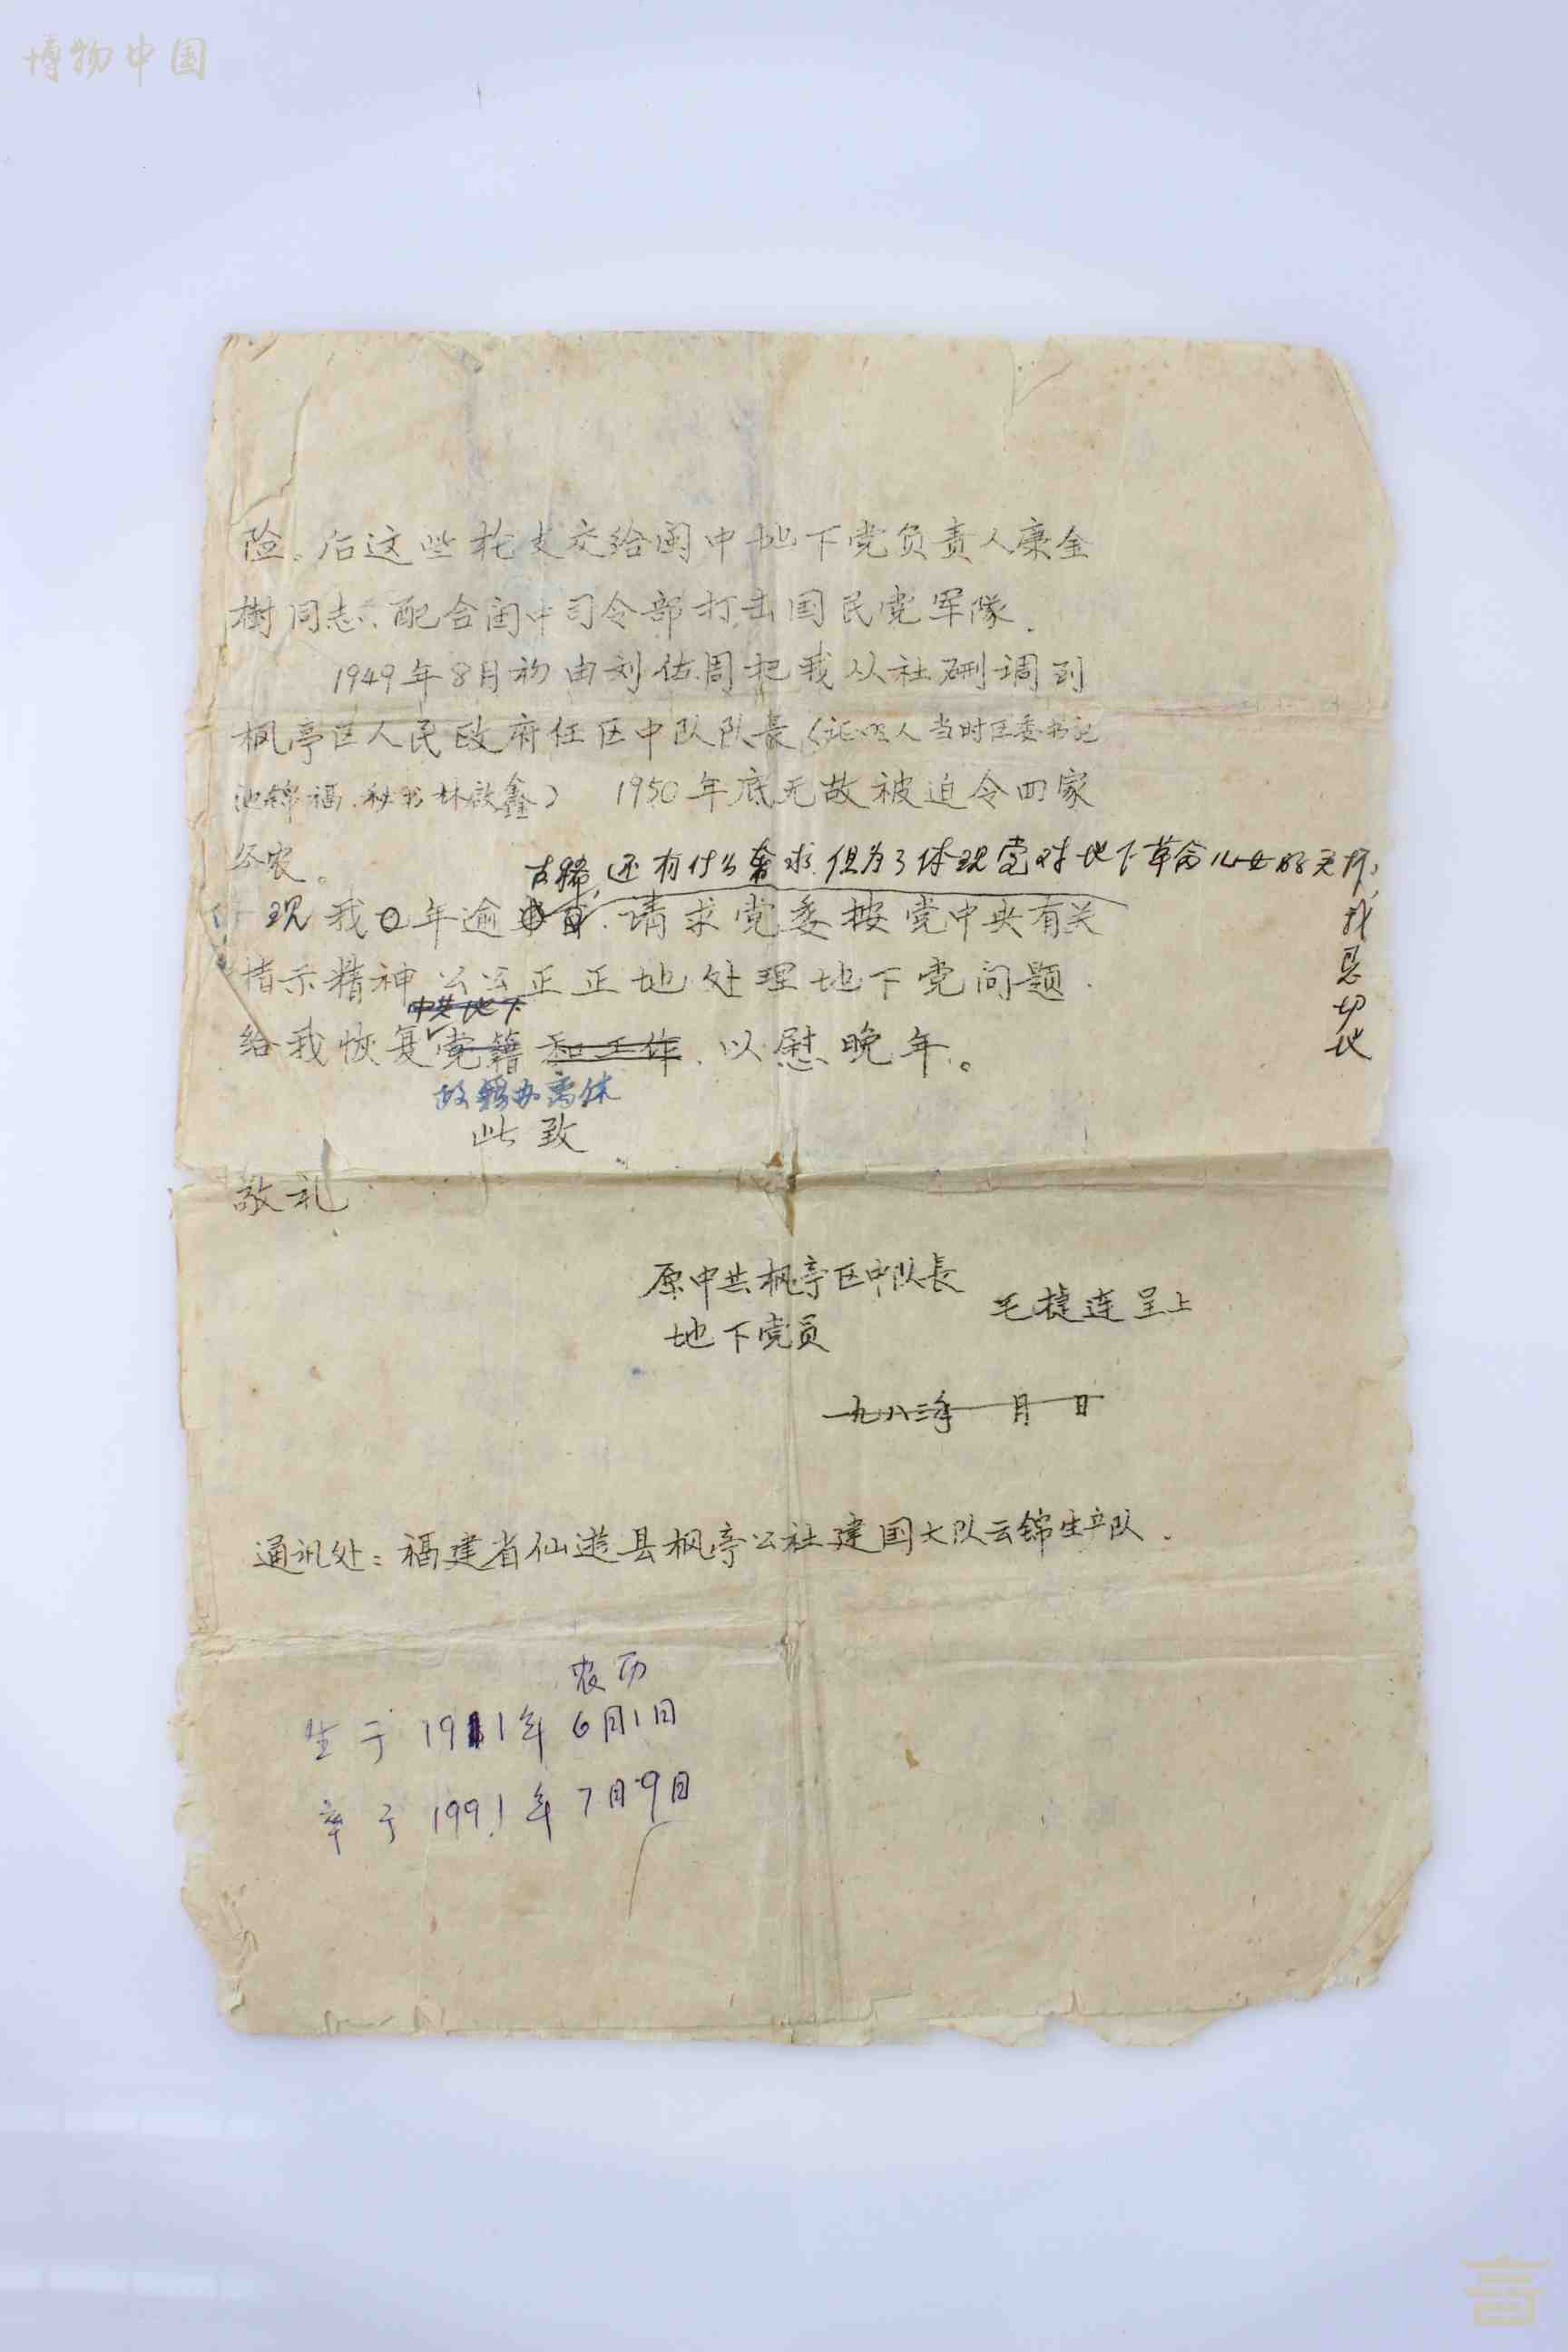 博物中国
险。后这些枪支交给闽中地下党负责人康金
樹同志、配合闽中司令部打击国民党军隊.
1949年8月初由刘佑周把我从社硎调到
枫亭区人民政府任区中队队長(证明人当时区委书记
池锦福、秘书林啟鑫) 1950年底无故被迫令回家
务农。
古稀,还有什么奢求.但为了体现党对地下革命儿女的关怀,
我恳切地
现我年逾 请求党委按党中央有关
指示精神公公正正地处理地下党问题.
中共地下
给我恢复党籍和工作.以慰晚年。
故籍办离休
此致
敬礼
原中共枫亭区中队長
地下党员
毛捷连呈上
一九八三年 月 日
通讯处:福建省仙遊县枫亭公社建国大队云锦生产队.
农历
生于1911年6月1日
卒于1991年7月9日
言